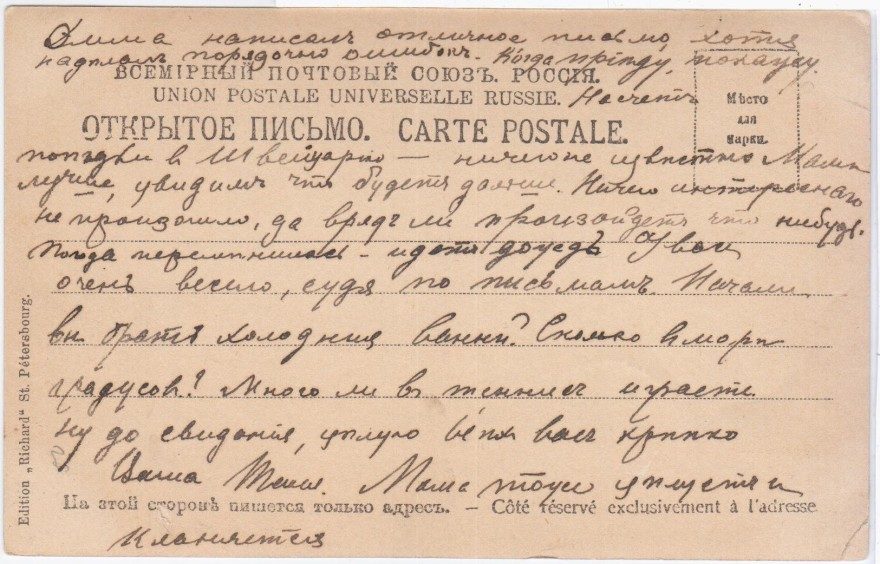 написалъ отличное письмо хотя
надѣлалъ порядочно ошибокъ. Когда пріѣду, покажу.
ВСЕМІРНЫЙ ПОЧТОВЫЙ СОЮЗЪ. РОССІЯ.
UNION POSTALE UNIVERSELLE RUSSIE. Насчетъ
Мѣсто
для
марки.
ОТКРЫТОЕ ПИСЬМО. CARTE POSTALE.
поѣздки в Швейцарію — ничего не извѣстно Мама
лучше, увидимъ что будетъ дальше. Ничего интереснаго
не произошло, да врядъ ли произойдетъ что нибудь.
Погода перемѣнилась - идетъ дождь У васъ
очень весело, судя по письмамъ. Начали
вы брать холодныя ванны? Сколько в морѣ
градусов? Много ли в теннисъ играете
ну до свиданія, цѣлую всѣхъ васъ крѣпко
Ваша Мама тоже цѣлуетъ и
На этой сторонѣ пишется только адресъ. — Côté réservé exclusivement à l'adresse
кланяется
Edition „Richard" St. Pétersbourg.